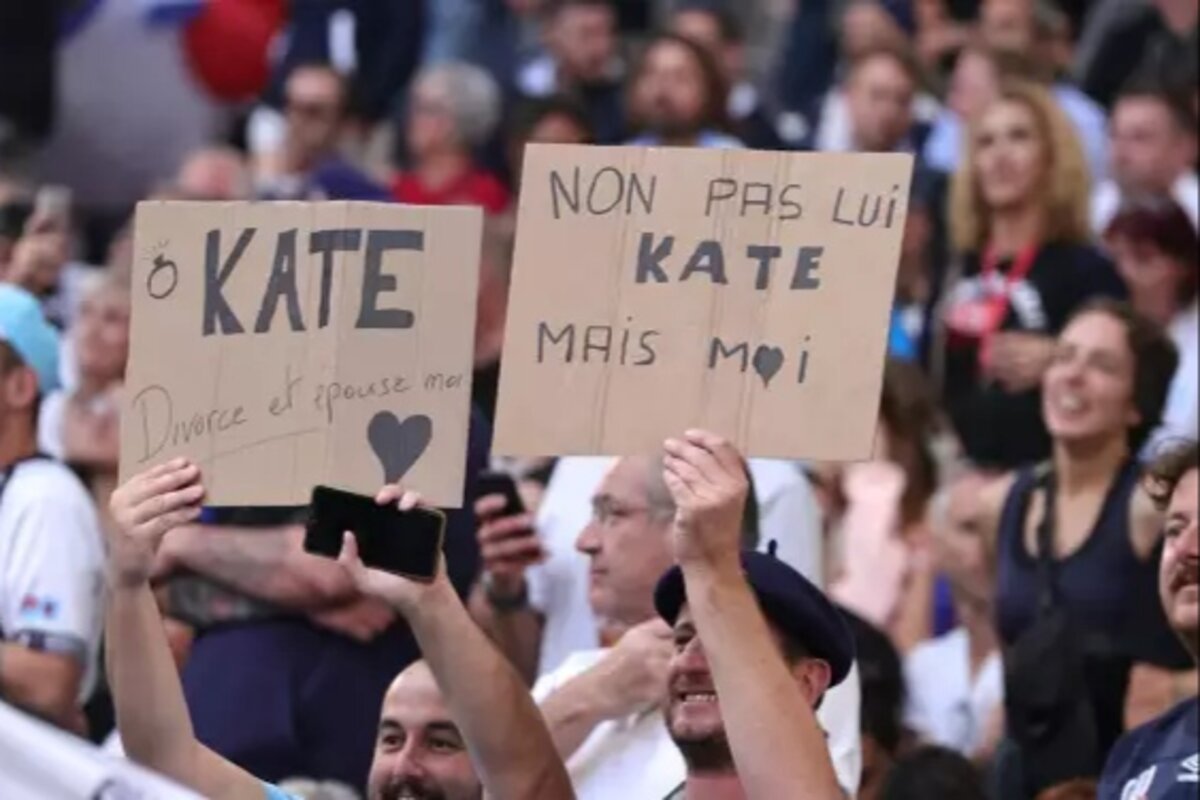 KATE
Divorce et épouse moi
NON PAS LUi
KATE
MAiS MOi